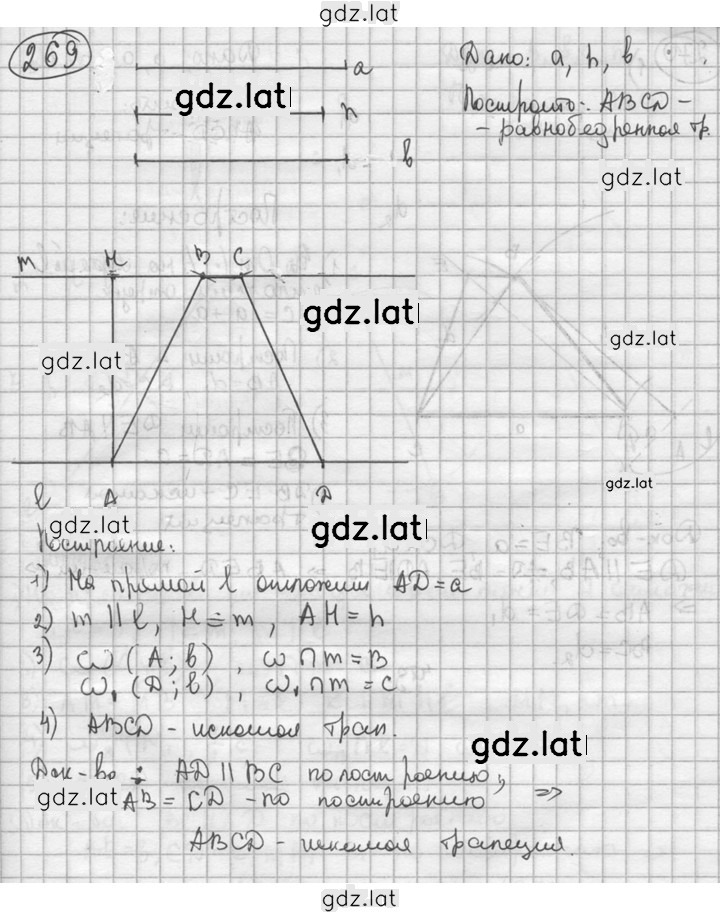 gdz.lat
269
a
Дано: a, h, b.
gdz.lat
h
Построить: ABCD -
b
- равнобедренная тр.
gdz.lat
m H B C
gdz.lat
gdz.lat
gdz.lat
gdz.lat
l A D
gdz.lat
gdz.lat
Построение:
1) На прямой l отложим AD = a
2) m || l, H ∈ m, AH = h
3) ω (A; b), ω ∩ m = B
ω₁ (D; b), ω₁ ∩ m = C
4) ABCD - искомая трап.
gdz.lat
Док-во: AD || BC по построению,
gdz.lat
AB = CD - по построению =>
ABCD - искомая трапеция.
gdz.lat